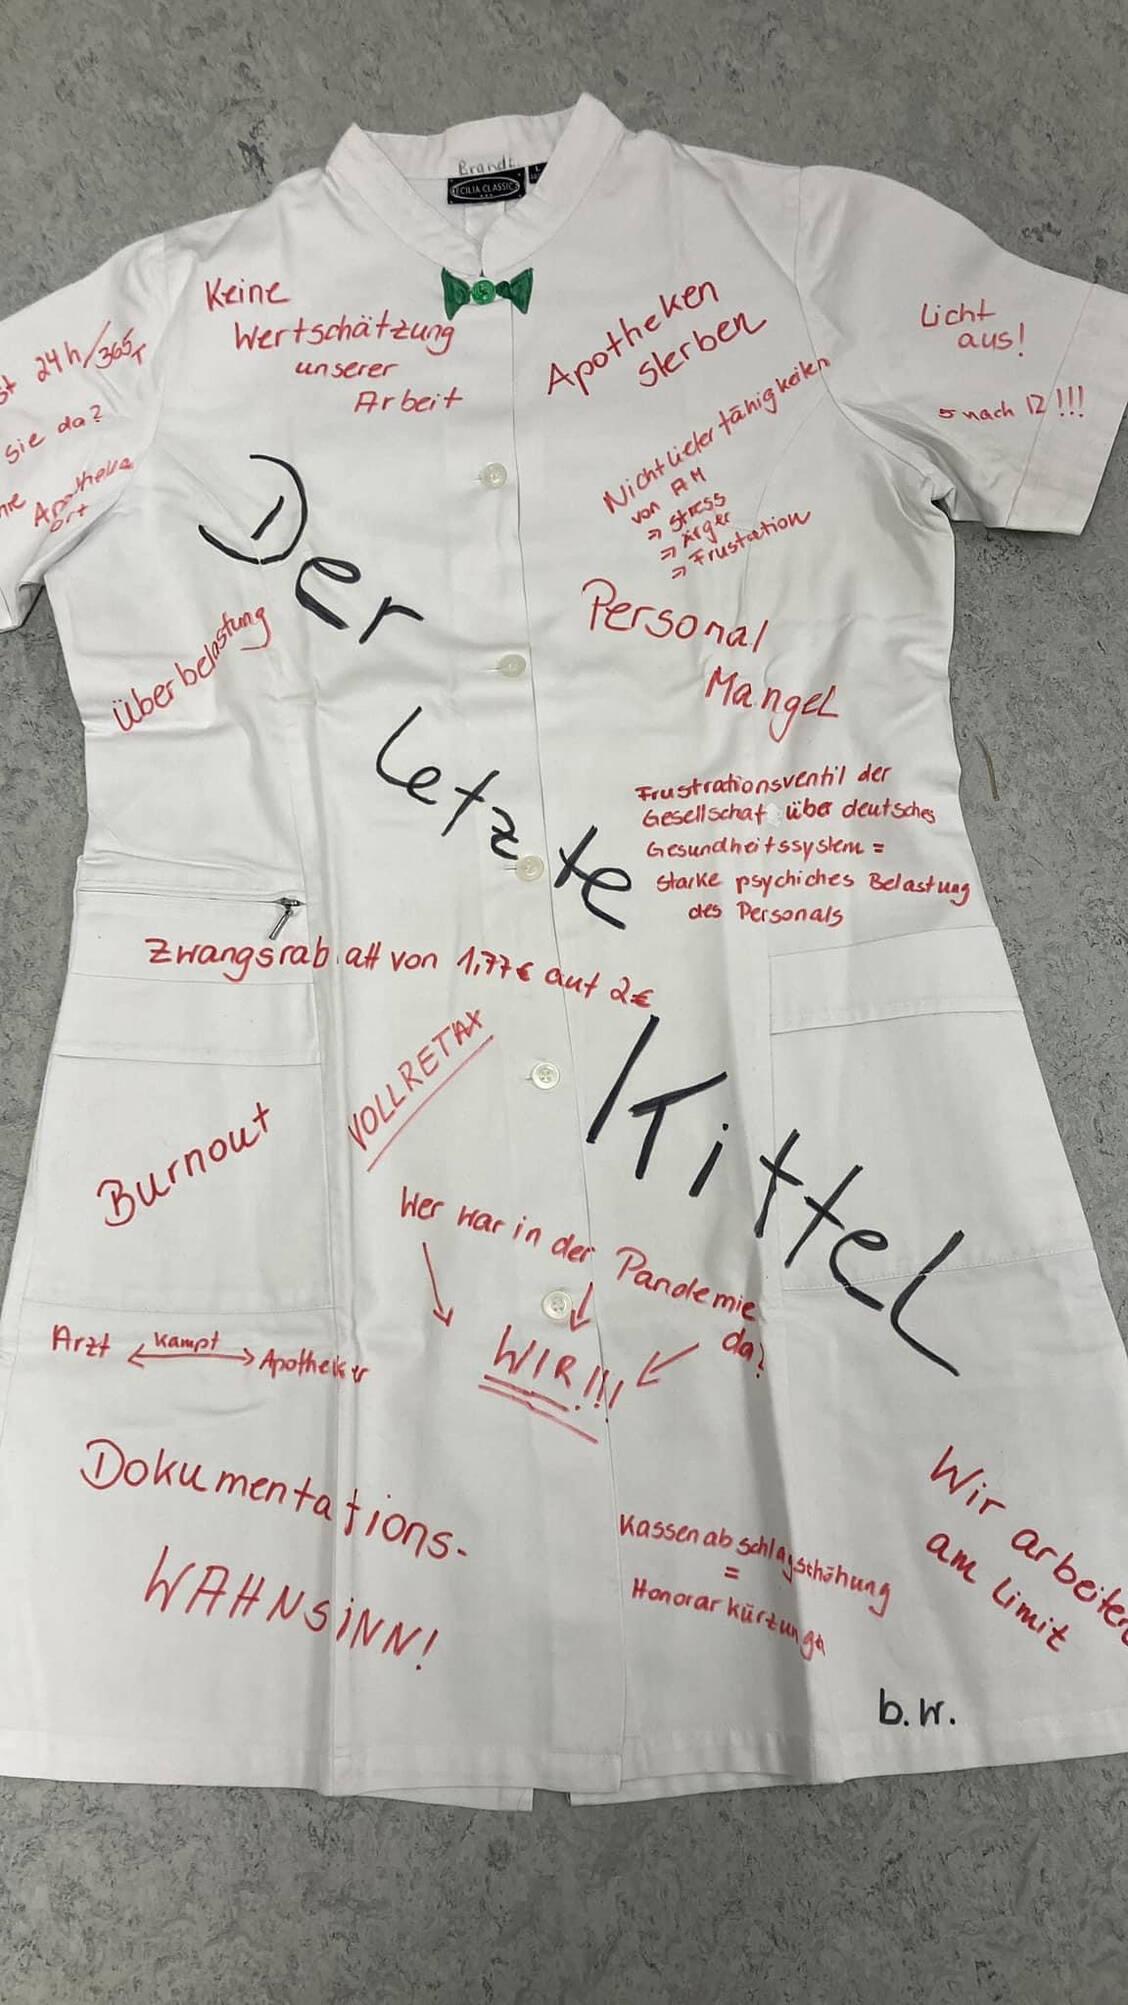 Brandt
L
CECILIA CLASSICS
Keine
Wertschätzung
unserer
Arbeit
Apotheken
sterben
Licht
aus!
5 nach 12!!!
24h/365T
sie da?
Apotheke
ort
Nichtlieferfähigkeiten
von AM
⇒ Stress
⇒ Ärger
⇒ Frustration
Der
letzte
Kittel
Überbelastung
Personal
Mangel
Frustrationsventil der
Gesellschaft über deutsches
Gesundheitssystem =
starke psychiches Belastung
des Personals
Zwangsrabatt von 1,77€ auf 2€
VOLLRETAX
Burnout
Wer war in der Pandemie
da?
WIR!!!
Arzt ←Kampf→ Apotheker
Dokumentations-
WAHNSiNN!
Kassenabschlagserhöhung
=
Honorarkürzung
Wir arbeiten
am Limit
b.w.